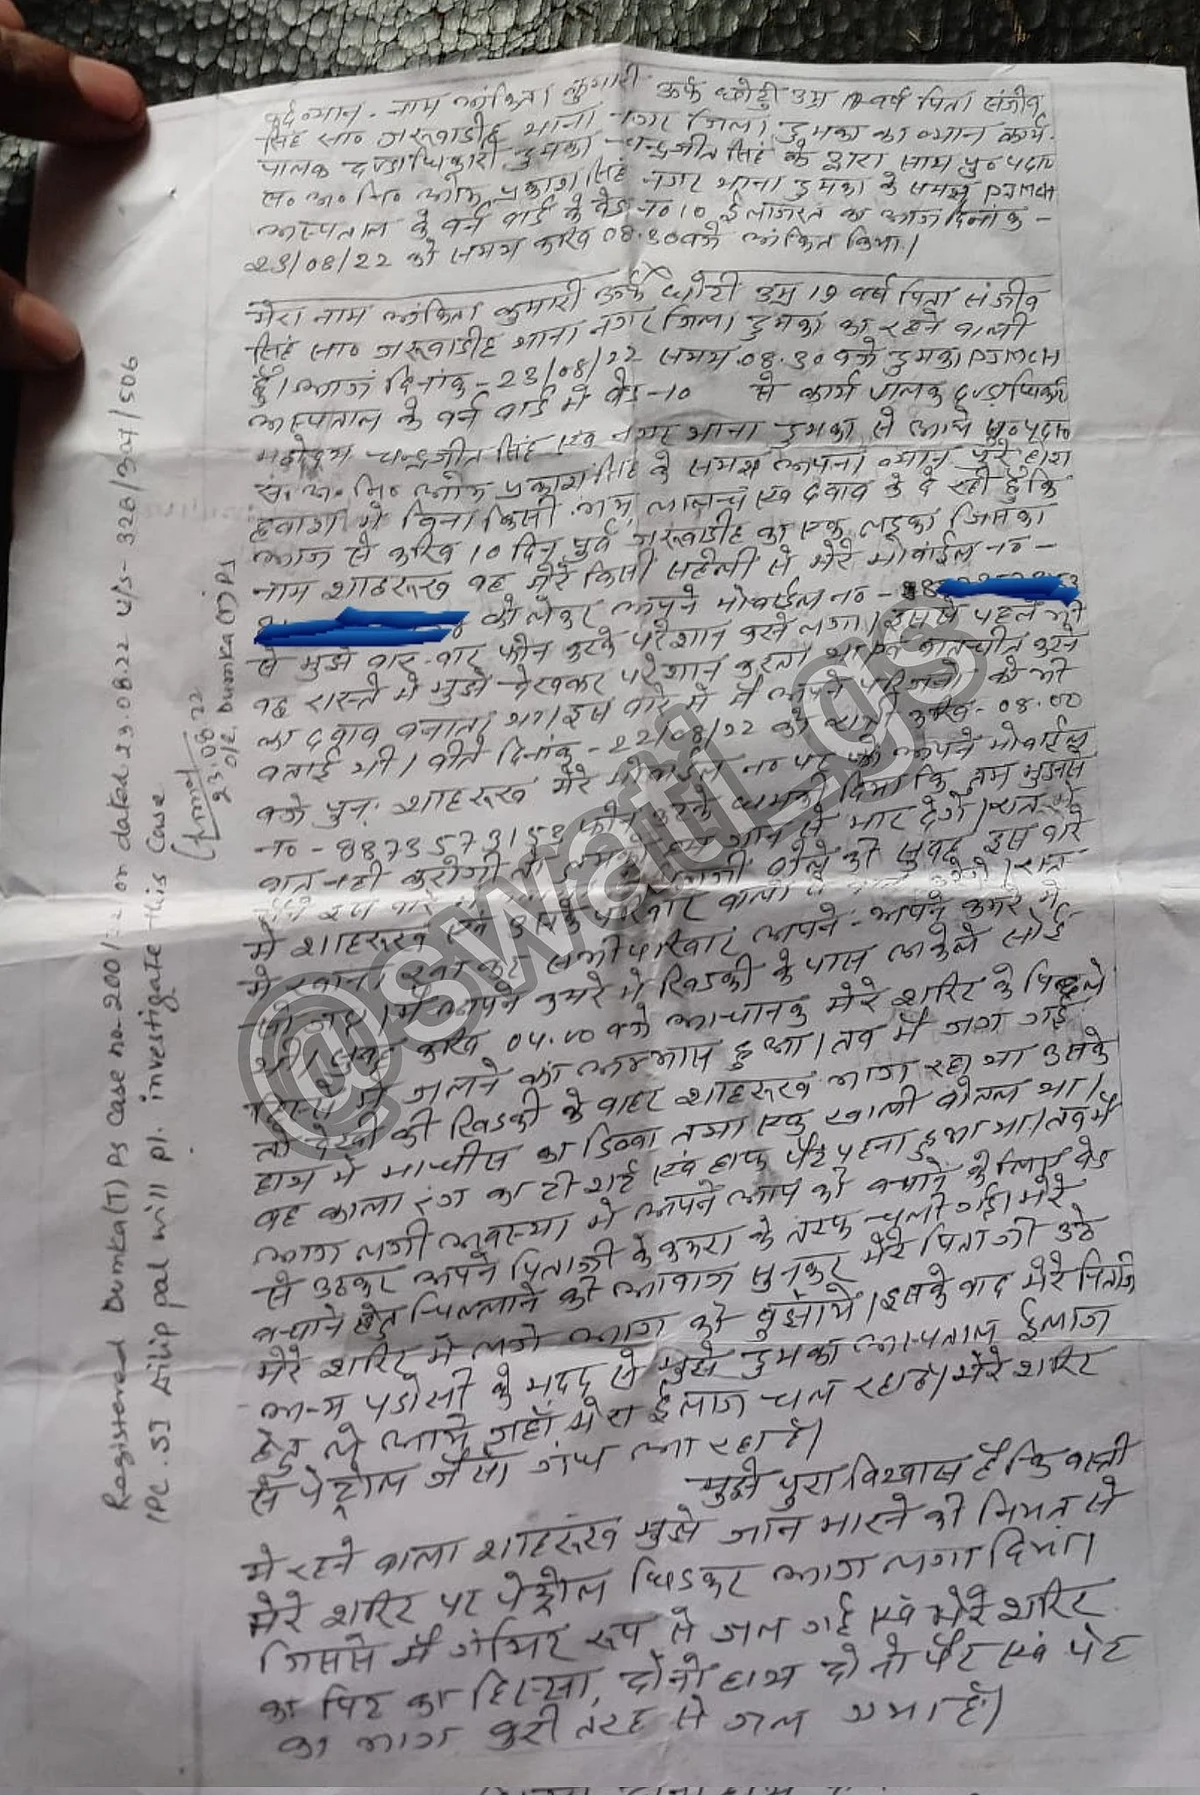 फर्द व्यान - नाम अंकिता कुमारी उर्फ छोटी उम्र 19 वर्ष पिता संजीव
सिंह सा० जरूवाडीह थाना नगर जिला दुमका का व्यान कार्य-
पालक दण्डाधिकारी दुमका चन्द्रजीत सिंह के द्वारा साथ पु० पदा०
स० अ० नि० प्रकाश सिंह नगर थाना दुमका के समक्ष PJMCH
अस्पताल के वर्न वार्ड के वेड न० 10 ईलाजरत का आज दिनांक -
23/08/22 को समय करिव 08.30 वजे अंकित किया।
मेरा नाम अंकिता कुमारी उर्फ छोटी उम्र 19 वर्ष पिता संजीव
सिंह सा० जरूवाडीह थाना नगर जिला दुमका का रहने वाली
हुँ। आज दिनांक - 23/08/22 समय 08.30 वजे दुमका PJMCH
अस्पताल के वर्न वार्ड मे वेड - 10 से कार्य पालक दण्डाधिकारी
महोदय चन्द्रजीत सिंह एवं नगर थाना दुमका से आये पु० पदा०
स० अ० नि० प्रकाश सिंह के समक्ष अपना व्यान पुरे होश
हवाश मे विना किसी भय, लालच एवं दवाव के दे रही हुँ कि
आज से करिव 10 दिन पुर्व जरूवाडीह का एक लड़का जिसका
नाम शाहरूख वह मेरे किसी सहेली से मेरे मोवाईल न० -
को लेकर अपने मोवाईल न० -
से मुझे वार - वार फोन करके परेशान करने लगा। इससे पहले भी
वह रास्ते मे मुझे देखकर परेशान करता था एवं वातचीत करने
का दवाव वनाता था। इस वारे मे मैं अपने परिजनो को भी
वताई थी। वीते दिनांक - 22/08/22 को करिव - 08.00
वजे पुन: शाहरूख मेरे मोवाईल न० पर अपने मोवाईल
न० - 8873573153 फोन करके धमकी दिया कि तुम मुझसे
वात नही करोगी तो तुमको हम जान से मार देगें।
इस वारे वोले की सुवह इस वारे
मे शाहरूख एवं उनके परिवार वालो रात
मे खाना खाकर सभी परिवार अपने - अपने कमरे मे
सो गए। मैं अपने कमरे मे खिडकी के पास अकेले सोई
थी। सुवह करिव 04.00 वजे अचानक मेरे शरिर के पिछले
हिस्सा मे जलने का आभास हुआ। तव मैं जग गई
तो देखी की खिडकी के वाहर शाहरूख भाग रहा था उसके
हाथ मे माचीस का डिव्वा तथा एक खाली वोतल था।
वह काला रंग का टी शर्ट एवं हाफ पैंट पहना हुआ था। तव मैं
आग लगी अवस्था मे अपने आप को वचाने के लिए वेड
से उठकर अपने पिताजी के कमरा के तरफ चली गई। मेरे
वचाने हेतु चिल्लाने की आवाज सुनकर मेरे पिताजी उठे
मेरे शरिर मे लगे आग को वुझाये। इसके वाद मेरे पिताजी
अन्य पडोसी के मदद से मुझे दुमका अस्पताल ईलाज
हेतु ले आये जहाँ मेरा ईलाज चल रहा है। मेरे शरिर
से पेट्रोल जैसा गंध आ रहा है।
मुझे पुरा विश्वास है कि वस्ती
मे रहने वाला शाहरूख मुझे जान मारने की नियत से
मेरे शरिर पर पेट्रोल छिडकर आग लगा दिया।
जिससे मैं गंभिर रूप से जल गई एवं मेरे शरिर
का पिठ का हिस्सा, दोनो हाथ दोनो पैर एवं पेट
का भाग वुरी तरह से जल गया है।
Registered Dumka(T) PS Case no-200/22 on dated 23.08.22 u/s- 326/307/506
IPC. SI Dilip pal will pl. investigate this case
23.08.22
O/C Dumka(T) PS
@swati_gs